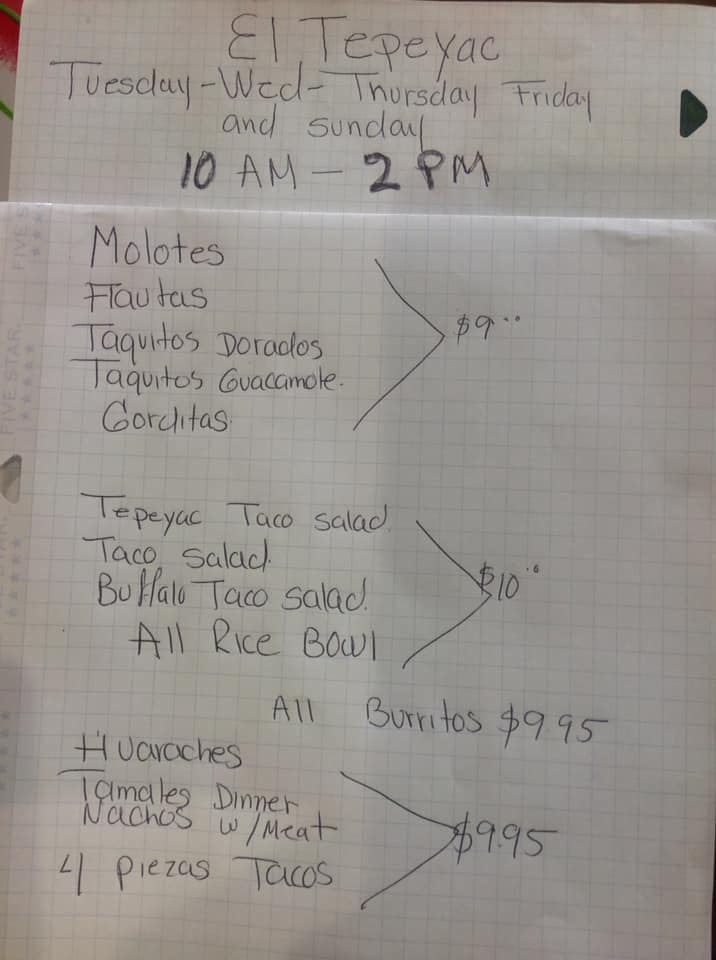 El Tepeyac
Tuesday-Wed- Thursday Friday
and sunday
10 AM - 2 PM
Molotes
Flautas
Taquitos Dorados
Taquitos Guacamole.
Gorditas
$9..
Tepeyac Taco salad.
Taco salad.
Buffalo Taco salad.
All Rice Bowl
$10..
All Burritos $9.95
Huaraches
Tamales Dinner
Nachos w/Meat
4 Piezas Tacos
$9.95
FIVE STAR.
FIVE S